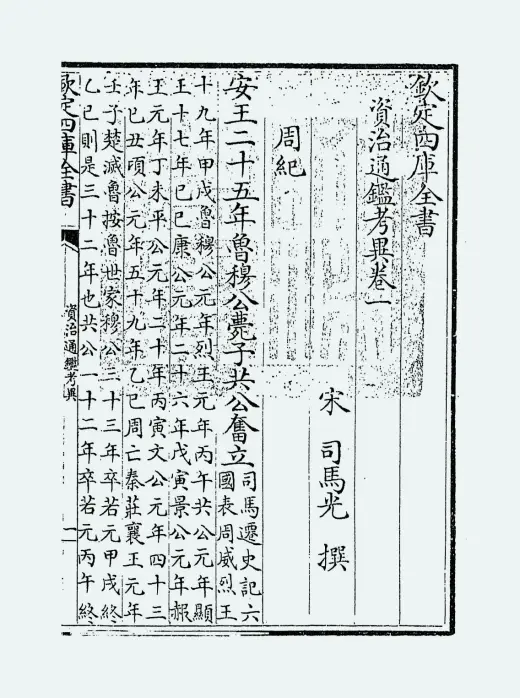 欽定四庫全書
資治通鑑考異卷一
宋 司馬光 撰
周紀
安王二十五年魯穆公薨子共公奮立
司馬遷史記六
國表周威烈王
十九年甲戌魯穆公元年烈王元年丙午共公元年顯
王十七年己巳康公元年二十六年戊寅景公元年赧
王元年丁未平公元年二十年丙寅文公元年四十三
年己丑頃公元年五十九年乙巳周亡秦莊襄王元年
壬子楚滅魯按魯世家穆公三十三年卒若元甲戌終
乙巳則是三十二年也共公二十二年卒若元丙午終
欽定四庫全書
資治通鑑考異
一